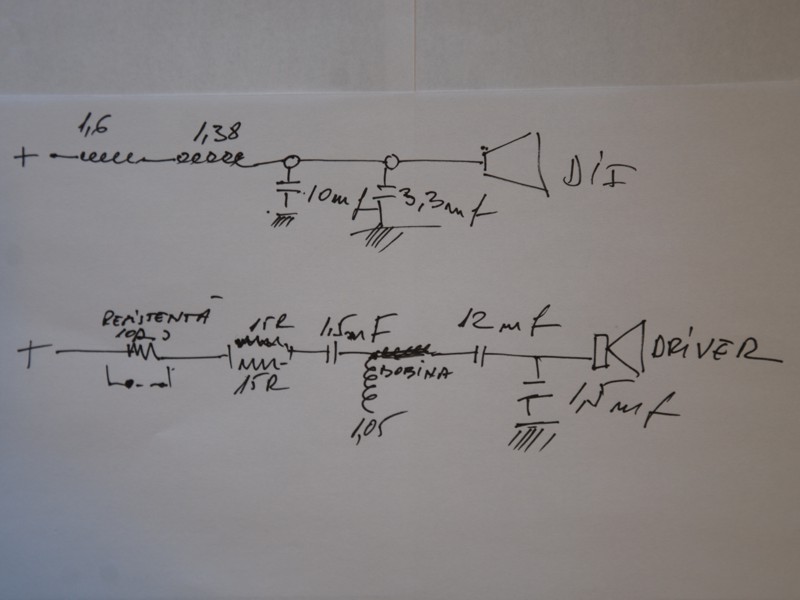 1,6 1,38
+
10mf 3,3mf
REZISTENTĂ
15R 1,5mF 12mf
+ DRIVER
15R BOBINA
1,5mf
1,05